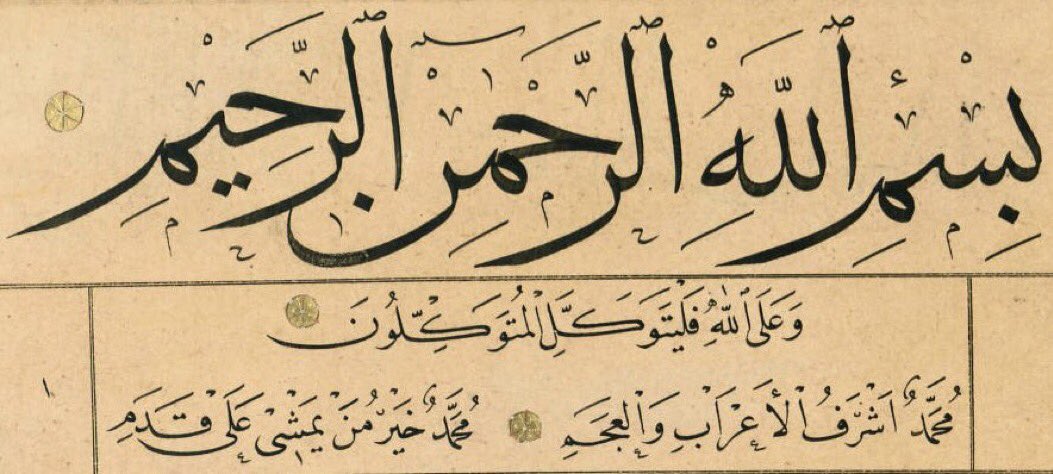 بِسْمِ ٱللَّهِ ٱلرَّحْمٰنِ ٱلرَّحِيمِ
وَعَلَى ٱللّٰهِ فَلْيَتَوَكَّلِ الْمُتَوَكِّلُونَ
مُحَمَّدٌ اَشْرَفُ الْأَعْرَابِ وَالْعَجَمِ مُحَمَّدٌ خَيْرُ مَنْ يَمْشِى عَلَى قَدَمِ